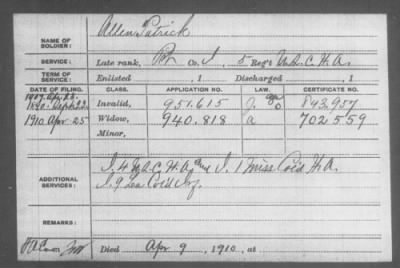 Allen Patrick
NAME OF SOLDIER:
SERVICE: Late rank, Pvt Co. I, 5 Reg't U.S.C.H.A.
TERM OF SERVICE: Enlisted , 1 Discharged , 1
DATE OF FILING. CLASS. APPLICATION NO. LAW. CERTIFICATE NO.
1890 Sept 22 Invalid, 951.615 J. 843.957
1910 Apr. 25 Widow, 940.818 a 702559
Minor,
ADDITIONAL SERVICES: I. 4 U.S.C.H.A. and I. 1 Miss Col'd H.A.
I. 9 La Col'd Inf.
REMARKS:
Died Apr 9, 1910, at